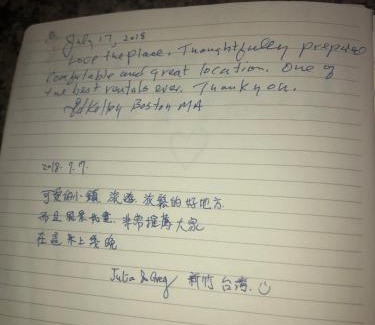 July 17, 2018
Love the place. Thoughtfully prepared
Comfortable and great location. One of
the best rentals ever. Thank you.
Ed Kelley Boston MA
2018. 9. 9.
可愛的小鎮 旅遊 放鬆的好地方
而且風景優美 非常推薦大家
在這来上幾晚
Julia & Greg 新竹 台湾